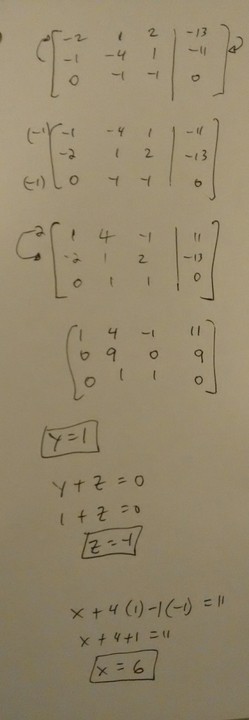 -2 1 2 | -13
-1 -4 1 | -11
0 -1 -1 | 0
(-1) -1 -4 1 | -11
-2 1 2 | -13
(-1) 0 -1 -1 | 0
2 1 4 -1 | 11
-2 1 2 | -13
0 1 1 | 0
1 4 -1 11
0 9 0 9
0 1 1 0
y=1
y+z=0
1+z=0
z=-1
x+4(1)-1(-1)=11
x+4+1=11
x=6